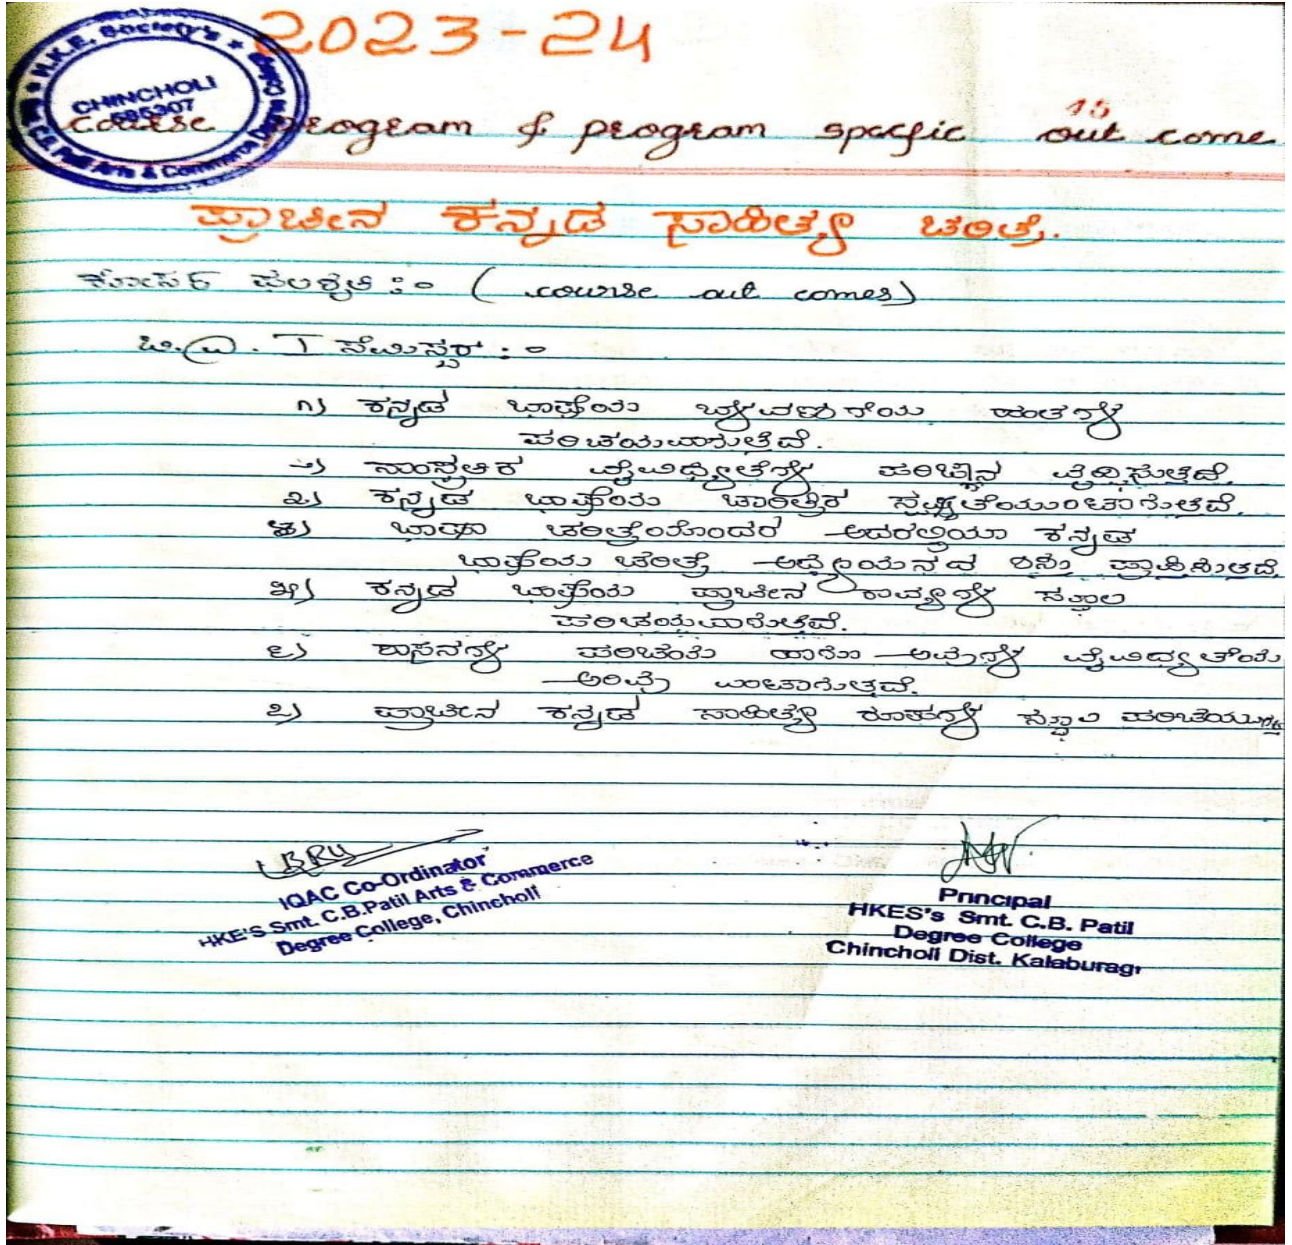 2023-24
H.K.E. Society's
CHINCHOLI
585307
15
course program & program spacfic out come
ಪ್ರಾಚೀನ ಕನ್ನಡ ಸಾಹಿತ್ಯ ಚರಿತ್ರೆ.
ಕೋರ್ಸ ಫಲಶೃತಿ :- ( course out comes)
ಬಿ.ಎ. I ಸೆಮಿಸ್ಟರ್ :-
೧) ಕನ್ನಡ ಭಾಷೆಯ ಹಂತಗಳ
ಪರಿಚಯವಾಗುತ್ತದೆ.
೨) ಸಾಂಸ್ಕೃತಿಕ ವೈವಿಧ್ಯತೆಗಳ ಪರಿಜ್ಞಾನ ವೃದ್ಧಿಸುತ್ತದೆ.
೩) ಕನ್ನಡ ಭಾಷೆಯ ಚಾರಿತ್ರಿಕ ಸ್ಪಷ್ಟತೆಯುಂಟಾಗುತ್ತದೆ.
೪) ಭಾಷಾ ಚರಿತ್ರೆಯೊಂದರ ಅದರಲ್ಲಿಯೂ ಕನ್ನಡ
ಭಾಷೆಯ ಚರಿತ್ರೆ ಅಧ್ಯಯನದ ಶಿಸ್ತು ಪ್ರಾಪ್ತಿಸುತ್ತದೆ.
೫) ಕನ್ನಡ ಭಾಷೆಯ ಪ್ರಾಚೀನ ಕಾವ್ಯಗಳ ಸ್ಥೂಲ
ಪರಿಚಯವಾಗುತ್ತದೆ.
೬) ಶಾಸನಗಳ ಪರಿಚಯ ಹಾಗೂ ಅವುಗಳ ವೈವಿಧ್ಯತೆಯ
ಅರಿವು ಉಂಟಾಗುತ್ತದೆ.
೭) ಪ್ರಾಚೀನ ಕನ್ನಡ ಸಾಹಿತ್ಯ ರೂಪಗಳ ಸ್ಥೂಲ
IQAC Co-Ordinator
HKE'S Smt. C.B.Patil Arts & Commerce
Degree College, Chincholi
Principal
HKES's Smt. C.B. Patil
Degree College
Chincholi Dist. Kalaburagi